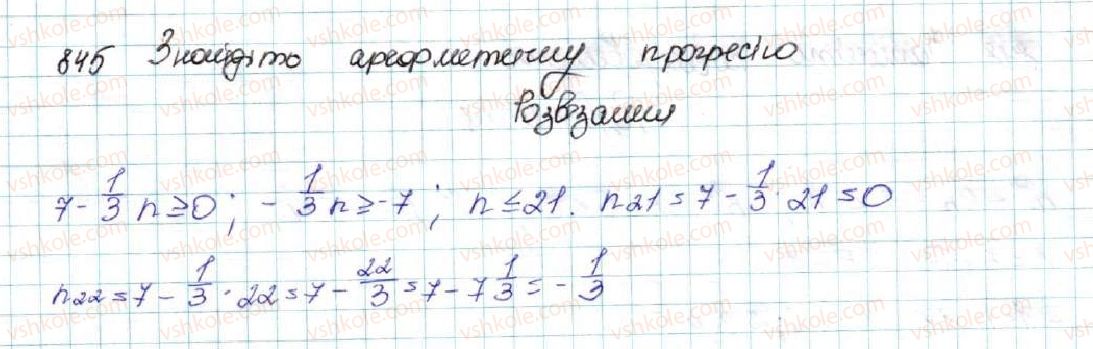 845 Знайдіто арефметичну прогресію
Розвзання
7 - 1/3 n ≥ 0; - 1/3 n ≥ -7; n ≤ 21. n21 = 7 - 1/3 · 21 = 0
n22 = 7 - 1/3 · 22 = 7 - 22/3 = 7 - 7 1/3 = - 1/3